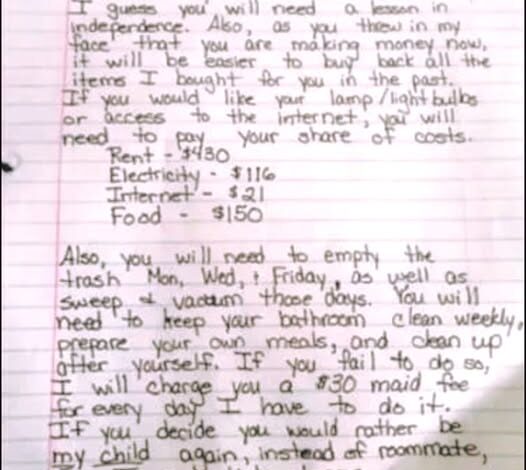 I guess you will need a lesson in
independence. Also, as you threw in my
face that you are making money now,
it will be easier to buy back all the
items I bought for you in the past.
If you would like your lamp/light bulbs
or access to the internet, you will
need to pay your share of costs.
Rent - $430
Electricity - $116
Internet - $21
Food - $150
Also, you will need to empty the
trash Mon, Wed, + Friday, as well as
sweep + vacuum those days. You will
need to keep your bathroom clean weekly,
prepare your own meals, and clean up
after yourself. If you fail to do so,
I will charge you a $30 maid fee
for every day I have to do it.
If you decide you would rather be
my child again, instead of roommate,